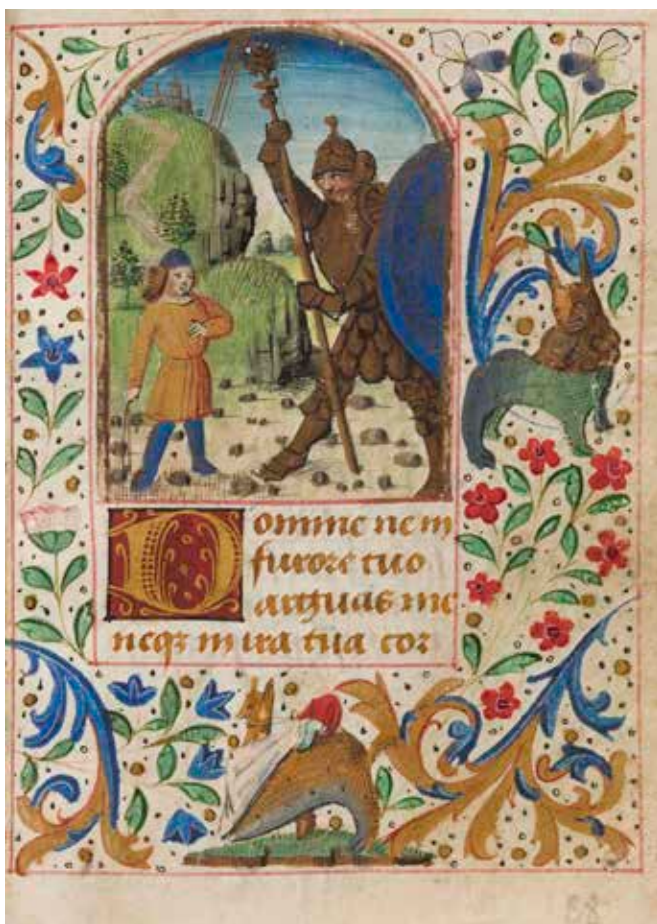 Domine ne in
furore tuo
arguas me
neqꝫ in ira tua cor